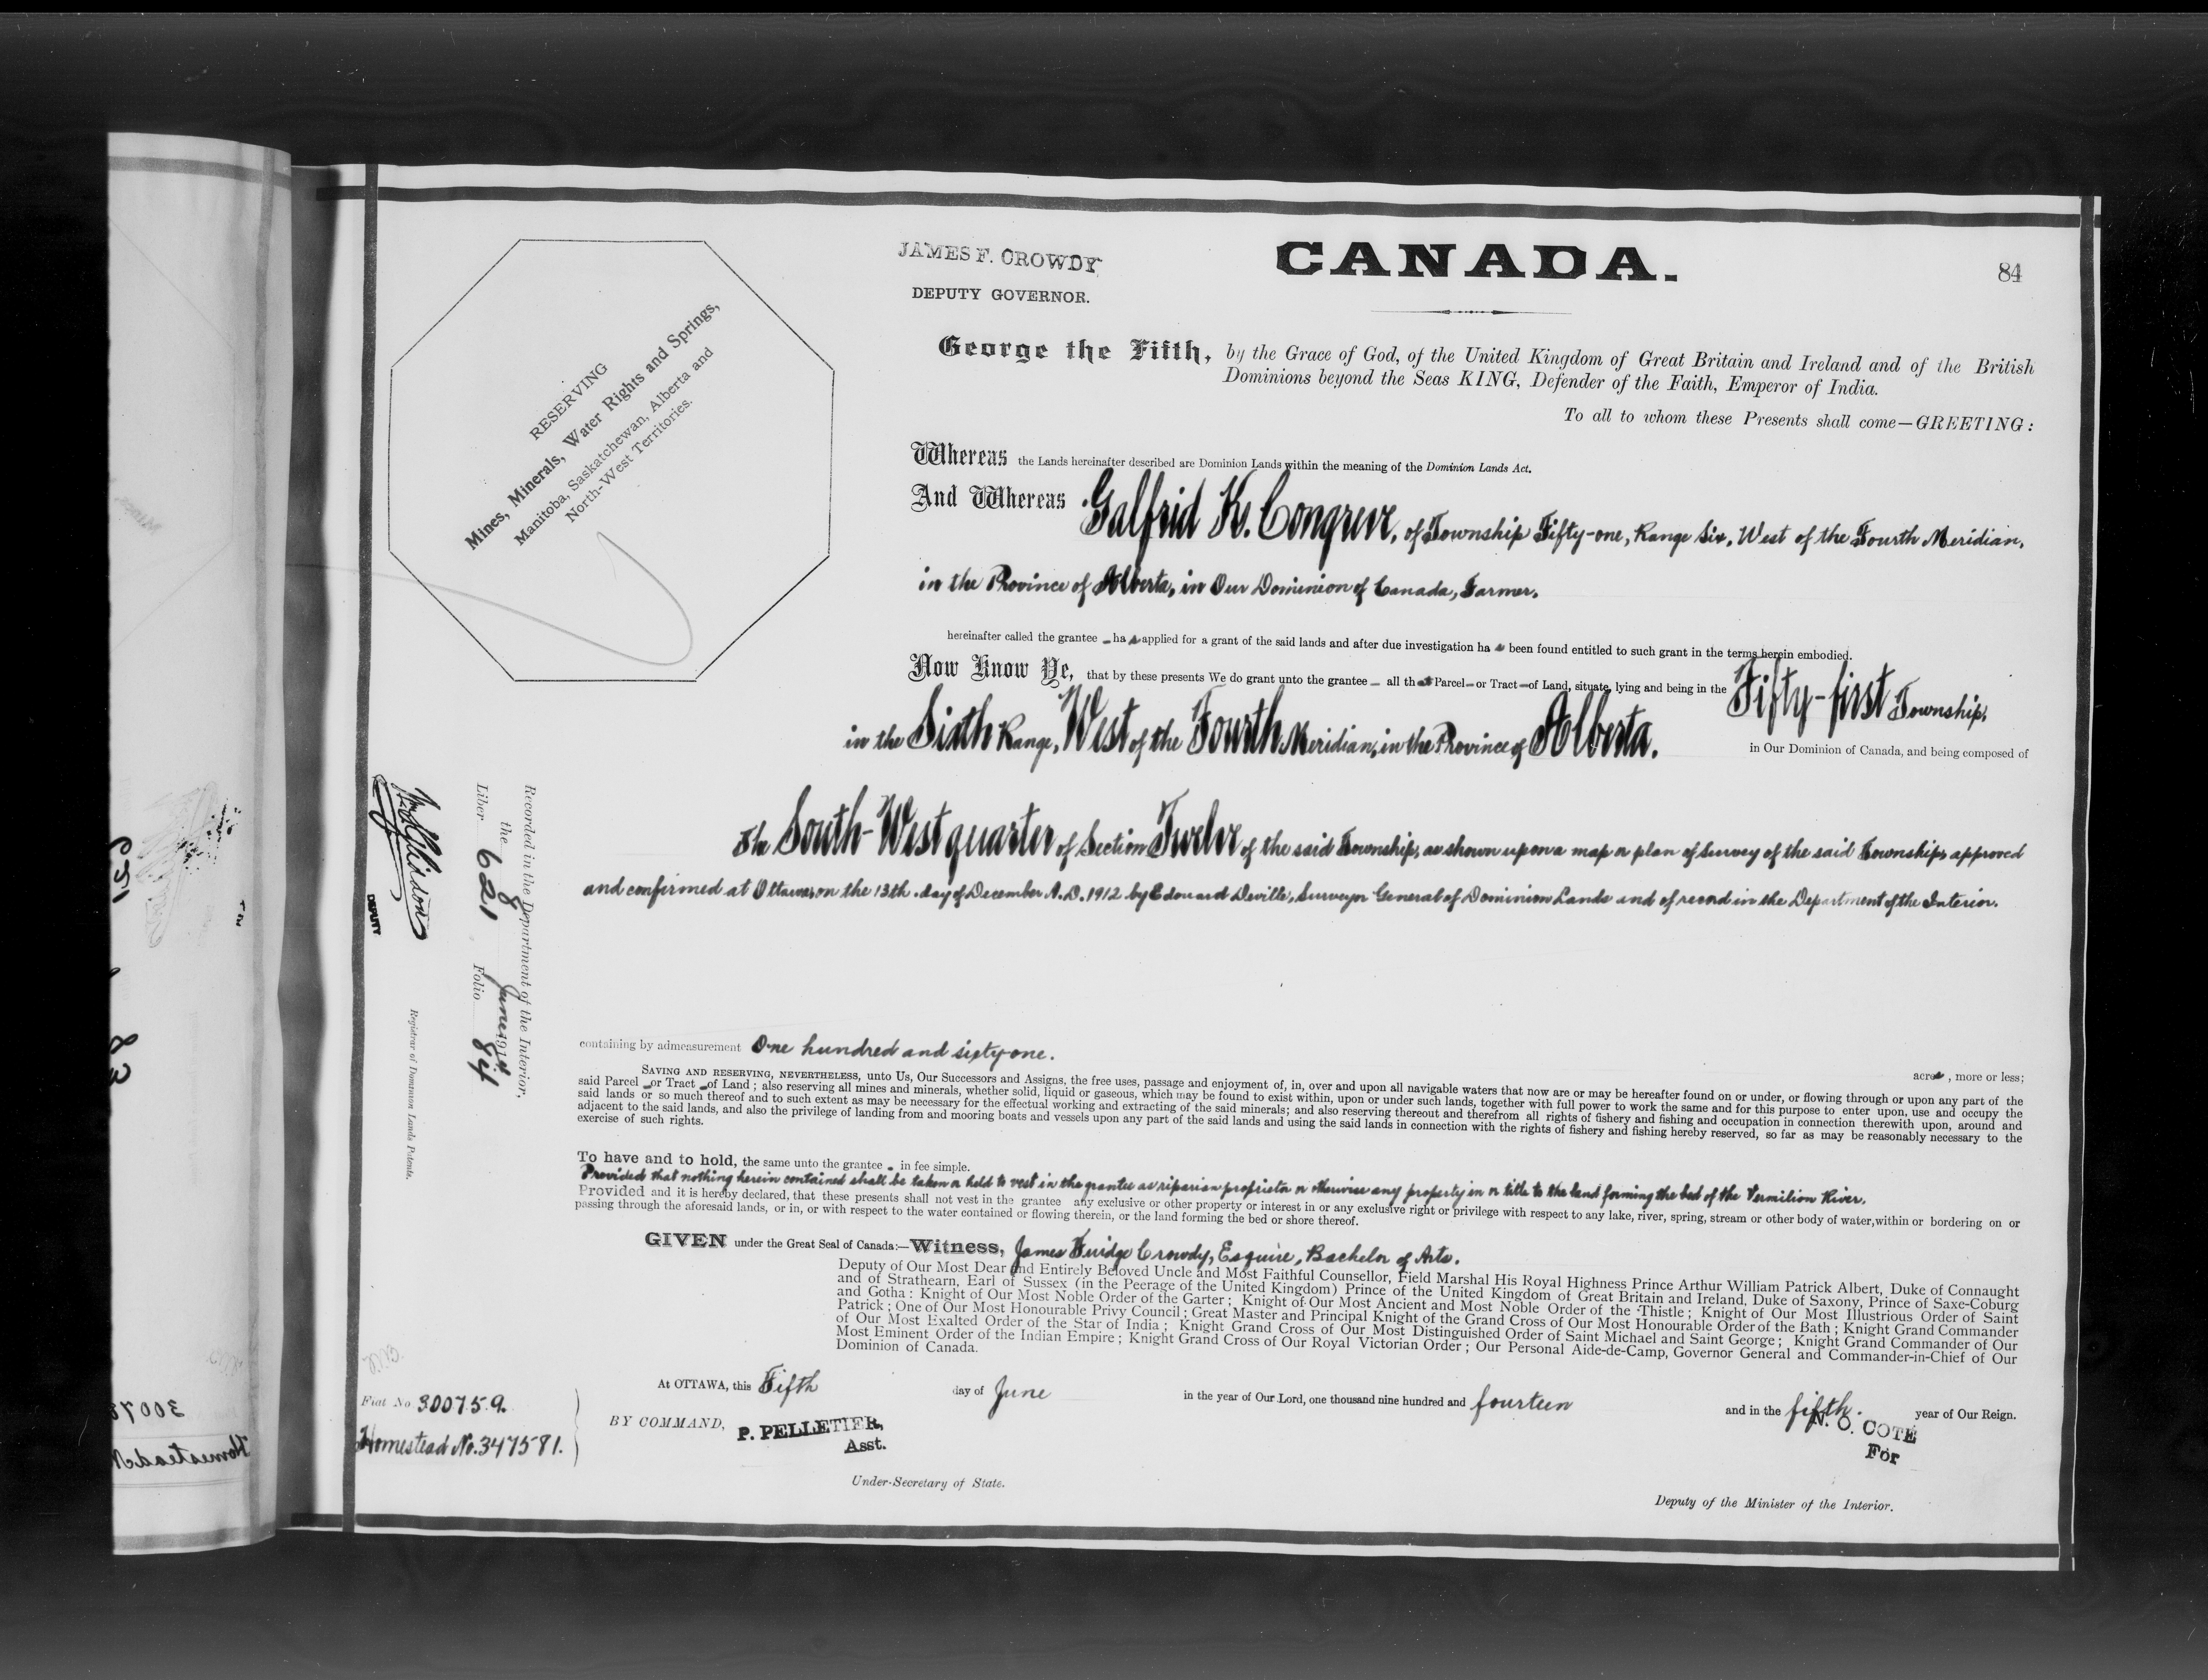 JAMES F. CROWDY
DEPUTY GOVERNOR.
CANADA.
84
RESERVING
Mines, Minerals, Water Rights and Springs,
Manitoba, Saskatchewan, Alberta and
North-West Territories.
George the Fifth, by the Grace of God, of the United Kingdom of Great Britain and Ireland and of the British
Dominions beyond the Seas KING, Defender of the Faith, Emperor of India.
To all to whom these Presents shall come—GREETING:
Whereas the Lands hereinafter described are Dominion Lands within the meaning of the Dominion Lands Act.
And Whereas Galfrid K. Congreve, of Township Fifty-one, Range Six, West of the Fourth Meridian,
in the Province of Alberta, in Our Dominion of Canada, Farmer,
hereinafter called the grantee – has applied for a grant of the said lands and after due investigation has been found entitled to such grant in the terms herein embodied.
Now Know Ye, that by these presents We do grant unto the grantee – all that Parcel – or Tract – of Land, situate, lying and being in the Fifty-first Township,
in the Sixth Range, West of the Fourth Meridian, in the Province of Alberta. in Our Dominion of Canada, and being composed of
The South-West quarter of Section Twelve of the said Township, as shown upon a map or plan of survey of the said Township approved
and confirmed at Ottawa, on the 13th. day of December A.D. 1912 by Edouard Deville, Surveyor General of Dominion Lands and of record in the Department of the Interior.
containing by admeasurement One hundred and sixty-one.
acres, more or less;
SAVING AND RESERVING, NEVERTHELESS, unto Us, Our Successors and Assigns, the free uses, passage and enjoyment of, in, over and upon all navigable waters that now are or may be hereafter found on or under, or flowing through or upon any part of the
said Parcel – or Tract – of Land; also reserving all mines and minerals, whether solid, liquid or gaseous, which may be found to exist within, upon or under such lands, together with full power to work the same and for this purpose to enter upon, use and occupy the
said lands or so much thereof and to such extent as may be necessary for the effectual working and extracting of the said minerals; and also reserving thereout and therefrom all rights of fishery and fishing and occupation in connection therewith upon, around and
adjacent to the said lands, and also the privilege of landing from and mooring boats and vessels upon any part of the said lands and using the said lands in connection with the rights of fishery and fishing hereby reserved, so far as may be reasonably necessary to the
exercise of such rights.
To have and to hold, the same unto the grantee – in fee simple.
Provided that nothing herein contained shall be taken or held to vest in the grantee as riparian proprietor or otherwise any property in or title to the land forming the bed of the Vermilion River.
Provided and it is hereby declared, that these presents shall not vest in the grantee any exclusive or other property or interest in or any exclusive right or privilege with respect to any lake, river, spring, stream or other body of water, within or bordering on or
passing through the aforesaid lands, or in, or with respect to the water contained or flowing therein, or the land forming the bed or shore thereof.
GIVEN under the Great Seal of Canada:—Witness, James Fuidge Crowdy, Esquire, Bachelor of Arts.
Deputy of Our Most Dear and Entirely Beloved Uncle and Most Faithful Counsellor, Field Marshal His Royal Highness Prince Arthur William Patrick Albert, Duke of Connaught
and of Strathearn, Earl of Sussex (in the Peerage of the United Kingdom) Prince of the United Kingdom of Great Britain and Ireland, Duke of Saxony, Prince of Saxe-Coburg
and Gotha: Knight of Our Most Noble Order of the Garter; Knight of Our Most Ancient and Most Noble Order of the Thistle; Knight of Our Most Illustrious Order of Saint
Patrick; One of Our Most Honourable Privy Council; Great Master and Principal Knight of the Grand Cross of Our Most Honourable Order of the Bath; Knight Grand Commander
of Our Most Exalted Order of the Star of India; Knight Grand Cross of Our Most Distinguished Order of Saint Michael and Saint George; Knight Grand Commander of Our
Most Eminent Order of the Indian Empire; Knight Grand Cross of Our Royal Victorian Order; Our Personal Aide-de-Camp, Governor General and Commander-in-Chief of Our
Dominion of Canada.
At OTTAWA, this Fifth day of June in the year of Our Lord, one thousand nine hundred and fourteen and in the fifth. year of Our Reign.
BY COMMAND, P. PELLETIER,
Asst.
Under-Secretary of State.
N. O. COTE
For
Deputy of the Minister of the Interior.
Fiat No 300759.
Homestead No. 347581.
Recorded in the Department of the Interior,
the 8 June 1914
Liber 621 Folio 84
DEPUTY
Registrar of Dominion Lands Patents.